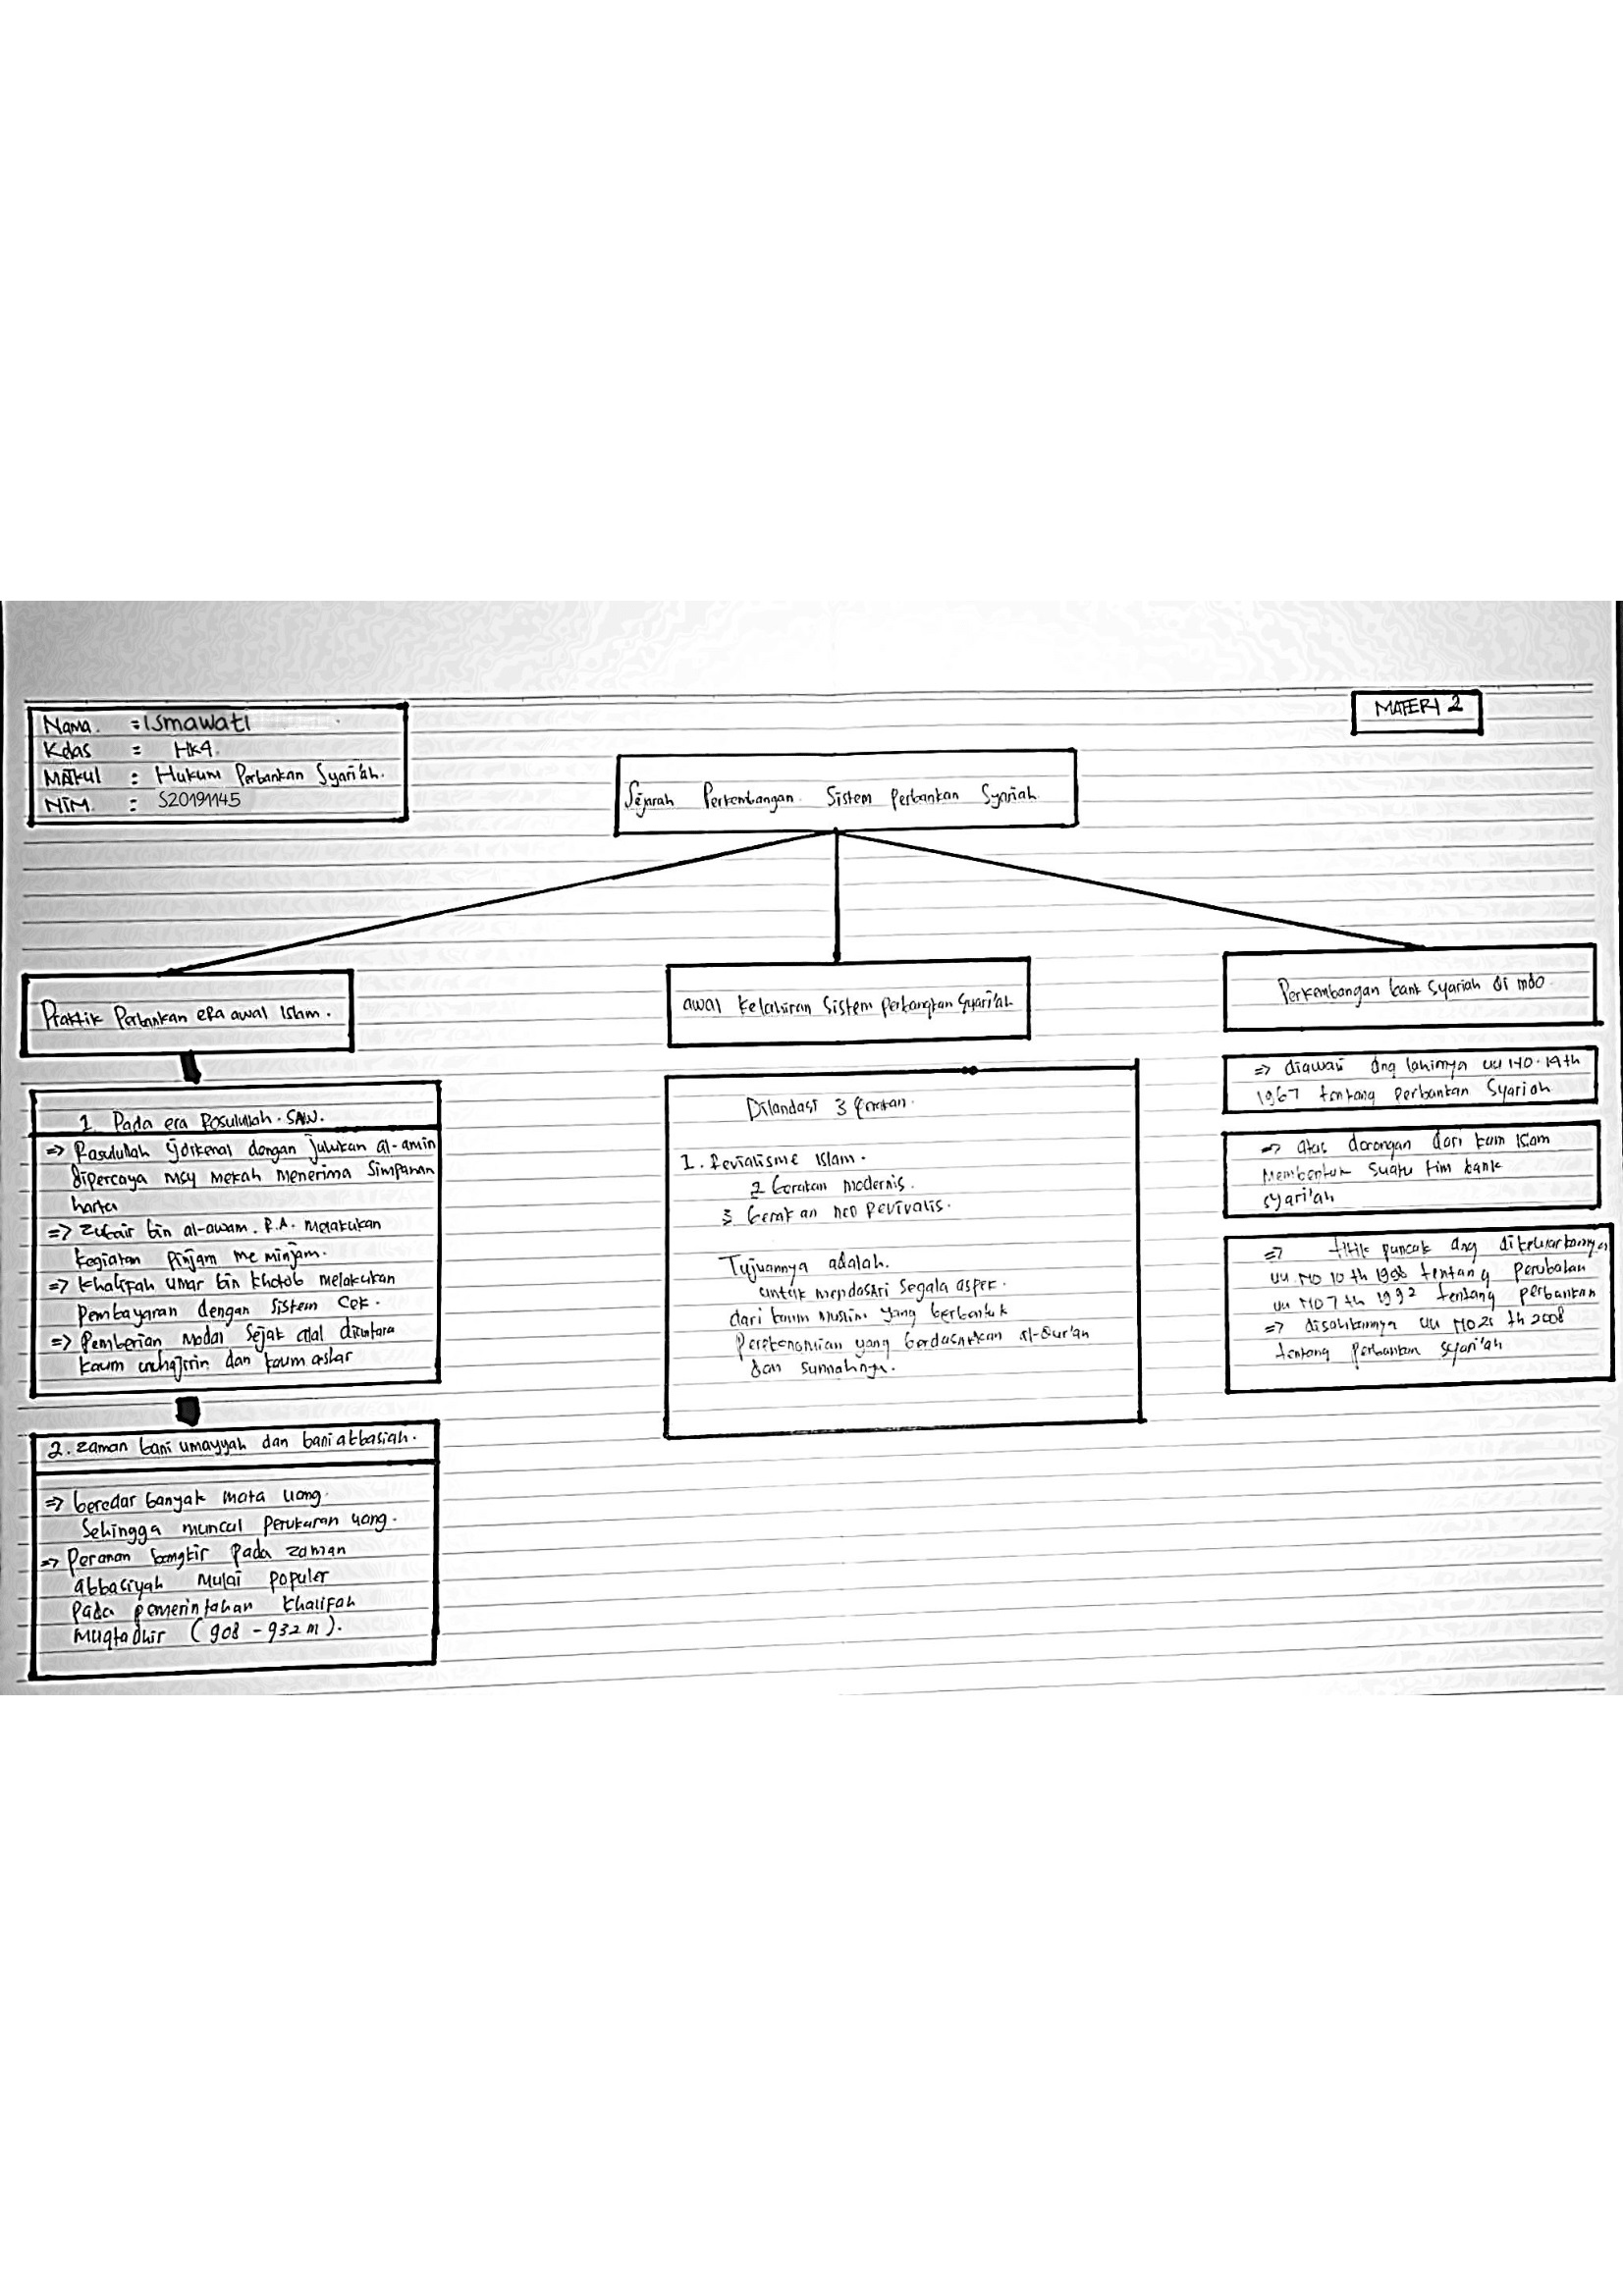 Nama : Ismawati
Kelas : HK4.
MAKul : Hukum Perbankan Syari'ah.
NIM : S20191145
MATERI 2
Sejarah Perkembangan Sistem Perbankan Syariah
Praktik Perbankan era awal Islam.
1. Pada era Rosulullah. SAW.
=> Rasulullah yg dikenal dengan julukan al-amin
dipercaya msy mekah menerima simpanan
harta
=> Zubair bin al-awam. R.A. melakukan
kegiatan pinjam me minjam.
=> Khalifah umar bin khotob melakukan
Pembayaran dengan sistem cek.
=> Pemberian modal sejak diantara
kaum dan kaum
2. zaman bani umayyah dan bani abbasiah.
=> beredar banyak mata uang
Sehingga muncul penukaran uang.
=> Peranan bangkir pada zaman
abbasiyah mulai populer
Pada pemerintahan khalifah
Muqtadhir (908 - 932 m).
awal kelahiran sistem perbangkan syari'ah
Dilandasi 3
1. Islam.
2 Gerakan modernis.
3 Gerakan neo Revivalis.
Tujuannya adalah.
untuk mendasari segala aspek.
dari kaum muslim yang berbentuk
Perekonomian yang berdasarkan al-Qur'an
dan sunnahnya.
Perkembangan bank syariah di indo
=> diawali dng lahirnya uu NO. 14 th
1967 tentang perbankan Syariah
=> atas dorongan dari kaum Islam
Membentuk suatu tim bank
syari'ah
=> titik puncak dng dikeluarkannya
uu NO 10 th 1998 tentang perubahan
uu NO 7 th 1992 tentang perbankan
=> disahkannya uu NO 21 th 2008
tentang perbankan syari'ah